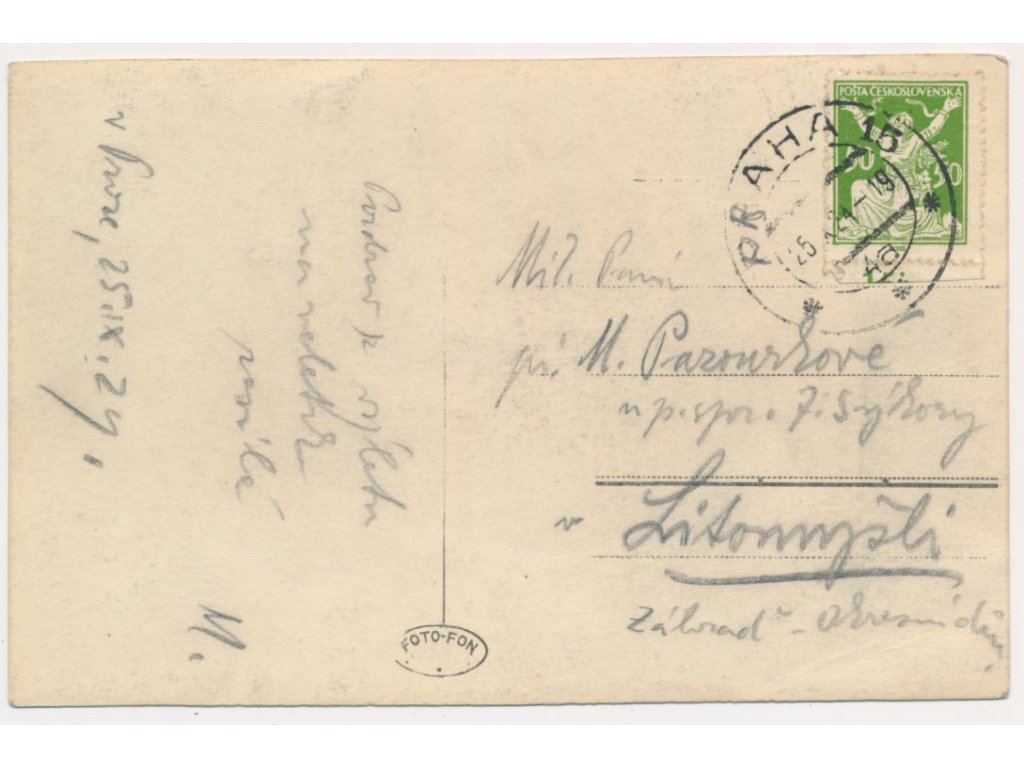 v Praze, 25.IX.21.
Pozdrav z výletu
na veletrh
M.
POŠTA ČESKOSLOVENSKÁ
50 50
PRAHA 15
25. 21-19
4a
Mil. Paní
pí. M. Pazourkové
u p. spr. J. Sýkory
v Litomyšli
Záhrad - okresní dům
FOTO-FON